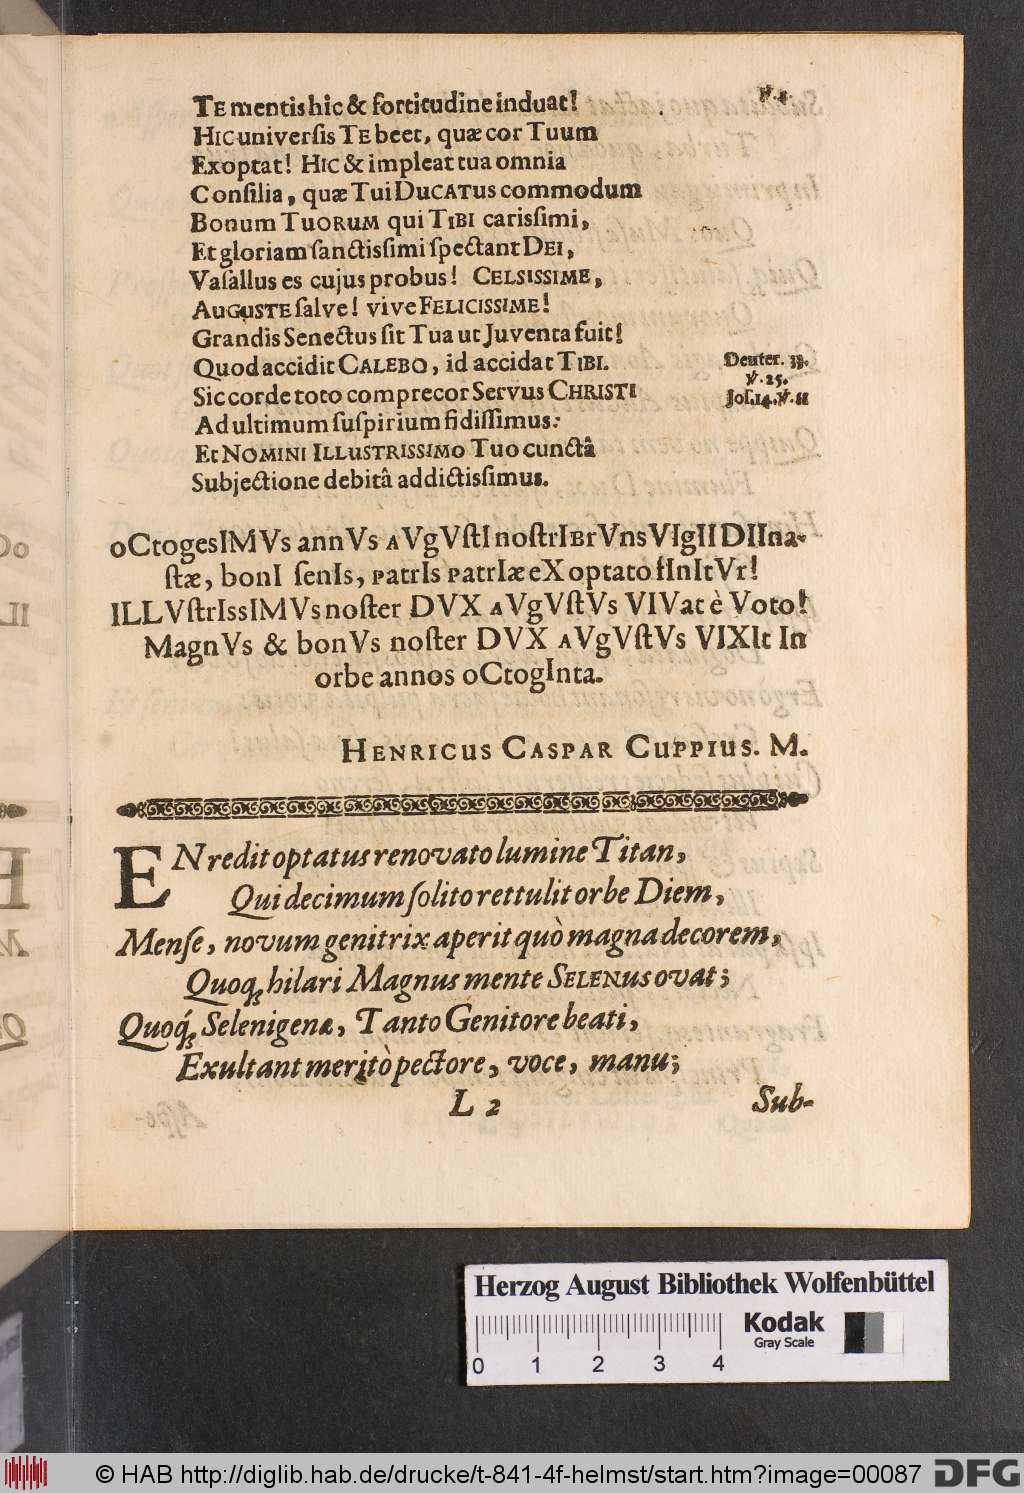 ℣.8.
TE mentis hic & fortitudine induat!
HIC universis TE beet, quæ cor Tuum
Exoptat! HIC & impleat tua omnia
Consilia, quæ Tui DUCATUS commodum
Bonum TUORUM qui TIBI carissimi,
Et gloriam sanctissimi spectant DEI,
Vasallus es cujus probus! CELSISSIME,
AUGUSTE salve! vive FELICISSIME!
Grandis Senectus sit Tua ut Juventa fuit!
Quod accidit CALEBO, id accidat TIBI.
Deuter. 33.
℣. 25.
Sic corde toto comprecor Servus CHRISTI
Jos. 14. ℣. 11
Ad ultimum suspirium fidissimus:
Et NOMINI ILLUSTRISSIMO Tuo cunctâ
Subjectione debitâ addictissimus.
oCtogesIMVs annVs AVgVstI nostrI BrVnsVIgII DIIna-
stæ, bonI senIs, patrIs patrIæ eXoptato fInItVr!
ILLVstrIssIMVs noster DVX AVgVstVs VIVat è Voto!
MagnVs & bonVs noster DVX AVgVstVs VIXIt In
orbe annos oCtogInta.
HENRICUS CASPAR CUPPIUS. M.
EN redit optatus renovato lumine Titan,
Qui decimum solito rettulit orbe Diem,
Mense, novum genitrix aperit quò magna decorem,
Quoq; hilari Magnus mente SELENUS ovat;
Quoq́; Selenigenæ, Tanto Genitore beati,
Exultant meritò pectore, voce, manu;
L 2
Sub-
Herzog August Bibliothek Wolfenbüttel
Kodak
Gray Scale
0 1 2 3 4
© HAB http://diglib.hab.de/drucke/t-841-4f-helmst/start.htm?image=00087
DFG